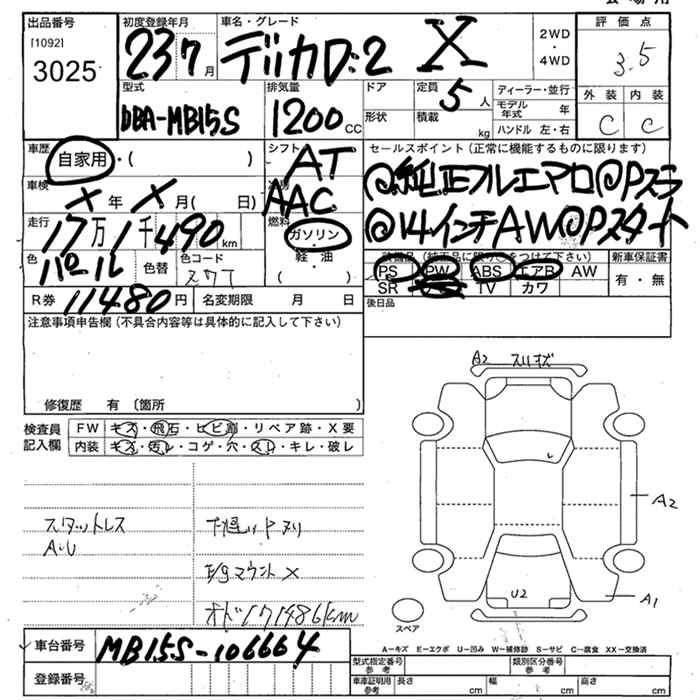 出品番号
[1092]
3025
初度登録年月
23 7月
車名・グレード
デリカD:2 X
2WD
・
4WD
評価点
3.5
外装 内装
C C
型式
DBA-MB15S
排気量
1200CC
ドア
定員
5人
形状
積載
kg
ディーラー・並行
モデル年式 年
ハンドル 左・右
車歴
自家用・( )
シフト
AT
車検
X年X月( 日)
冷房
AAC
走行
17万1千490km
燃料
ガソリン・
軽・油
( )
色
パール
色替
色コード
スワT
R券 11480円
名変期限 月 日
セールスポイント(正常に機能するものに限ります)
@純正フルエアロ@Pスラ
@14インチAW@Pスタート
装備品(純正品に限り○をつけて下さい)
PS PW ABS エアB AW
SR TV カワ
新車保証書
有・無
後日品
注意事項申告欄(不具合内容等は具体的に記入して下さい)
修復歴 有 〔箇所 〕
検査員記入欄
FW キズ・飛石・ヒビ割・リペア跡・X要
内装 キズ・汚レ・コゲ・穴・スレ・キレ・破レ
スタットレス
A・U
下廻りPヌリ
E/gマウントX
オド171486km
A2 スリキズ
A2
U2
A1
スペア
A−キズ E−エクボ U−凹み W−補修跡 S−サビ C−腐食 XX−交換済
車台番号
MB15S-106664
登録番号
型式指定番号
参考
類別区分番号
参考
車庫証明用
参考
長さ cm
幅 cm
高さ cm